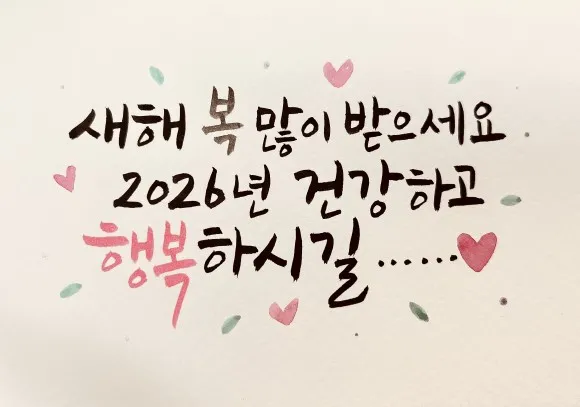 새해 복 많이 받으세요
2026년 건강하고
행복하시길......